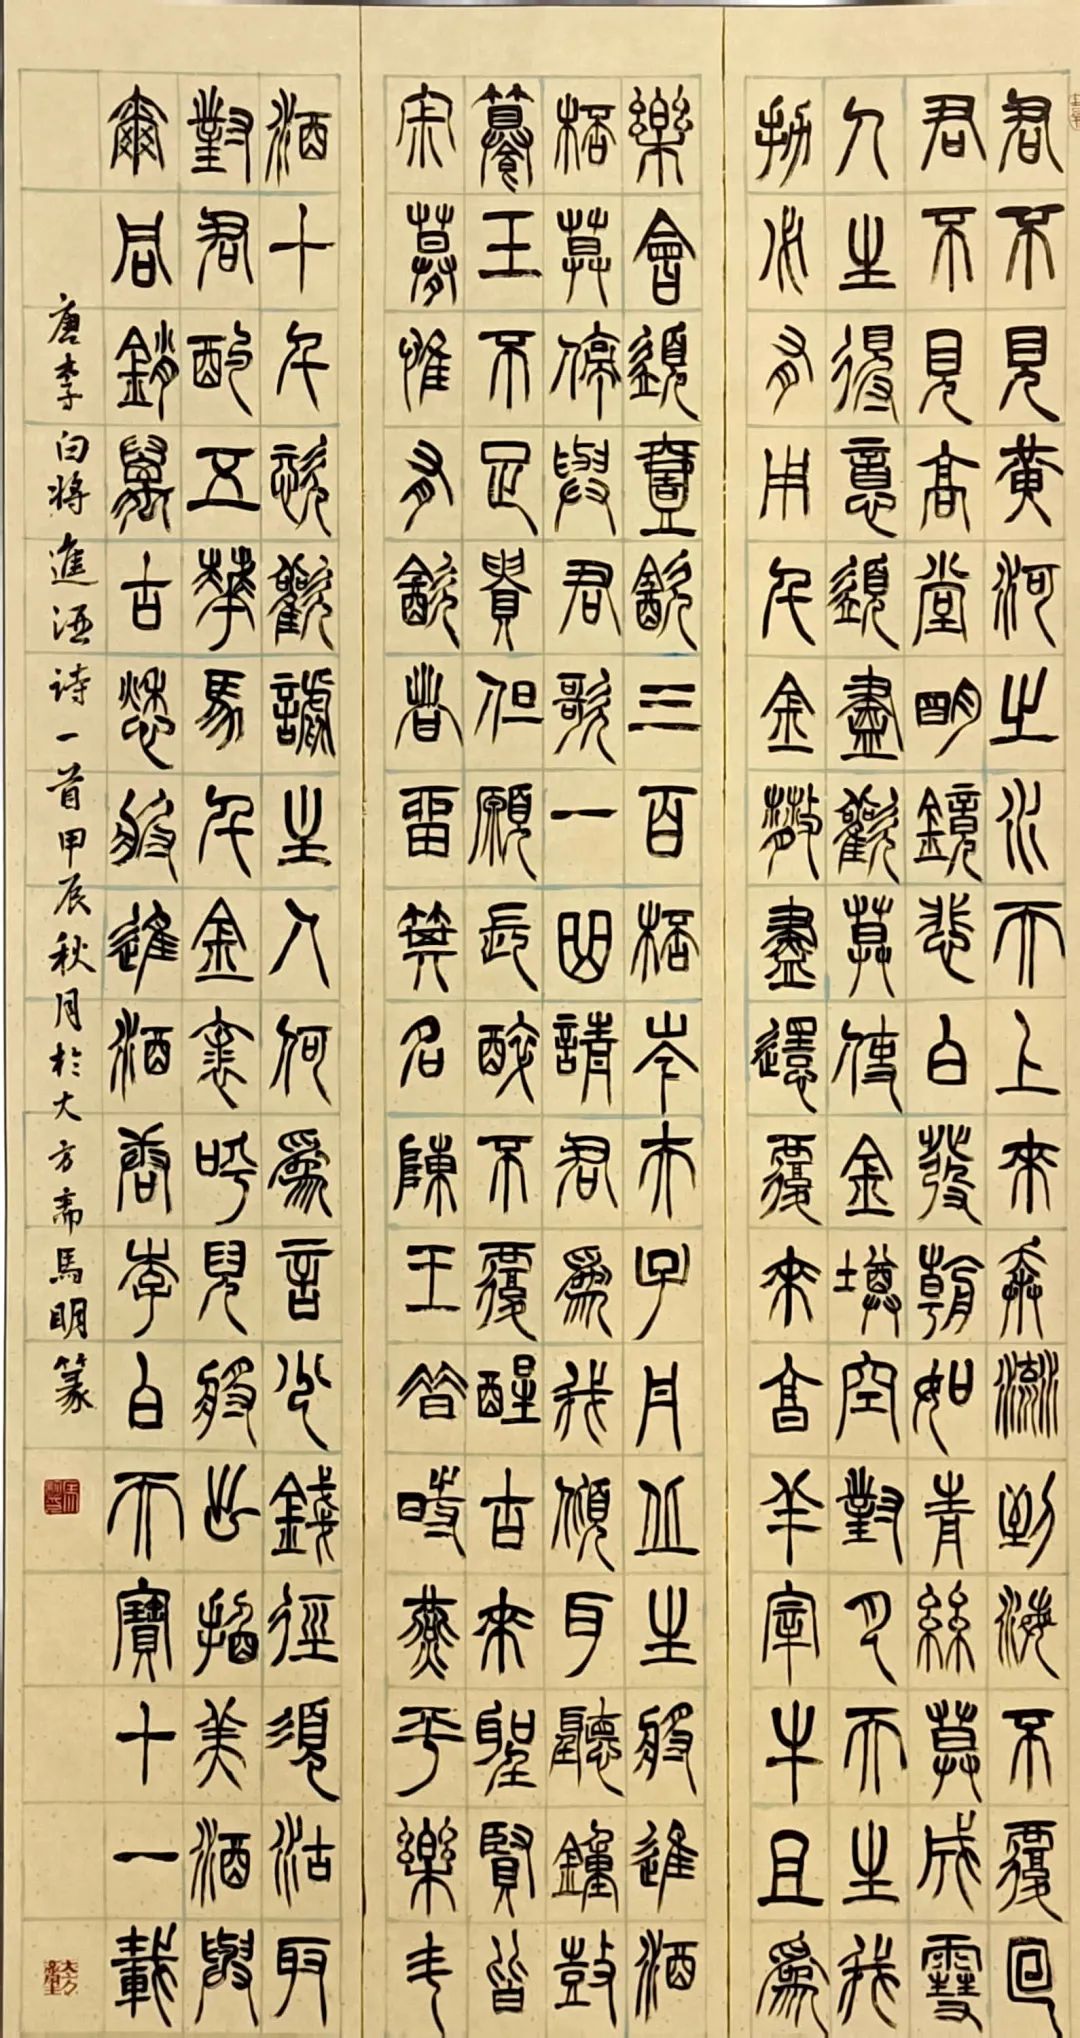 君不見黃河之水天上來奔流到海不復回
君不見高堂明鏡悲白髮朝如青絲莫成雪
人生得意須盡歡莫使金樽空對月天生我
材必有用千金散盡還復來烹羊宰牛且為
樂會須壹飲三百杯岑夫子丹丘生將進酒
杯莫停與君歌一曲請君為我傾耳聽鐘鼓
饌玉不足貴但願長醉不復醒古來聖賢皆
寂寞惟有飲者留其名陳王昔時宴平樂斗
酒十千恣歡謔主人何為言少錢徑須沽取
對君酌五華馬千金裘呼兒將出換美酒與
爾同銷萬古愁將進酒唐李白天寶十一載
唐李白將進酒诗一首甲辰秋月於大方斋馬明篆